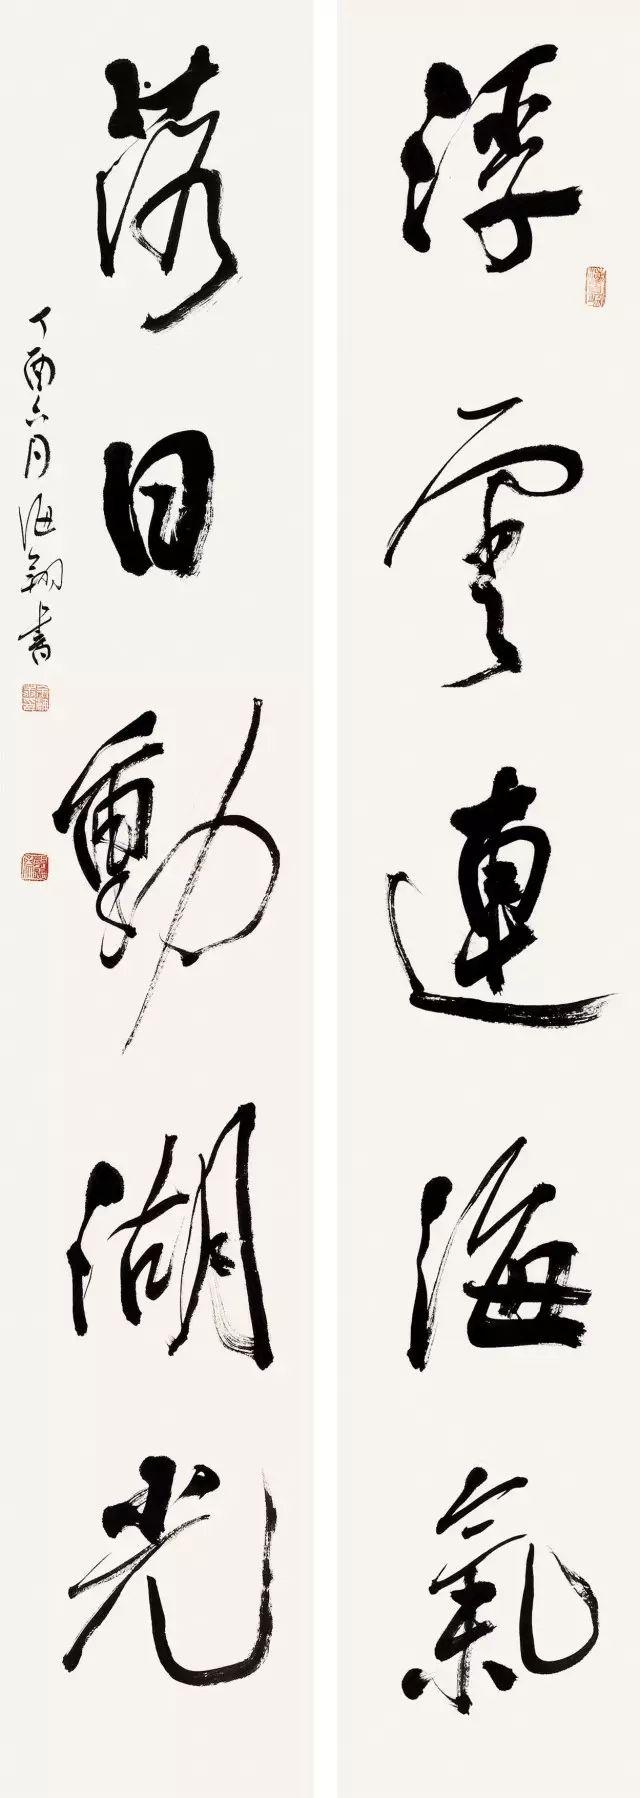 浮雲連海氣
落日動湖光
丁酉六月海翔書